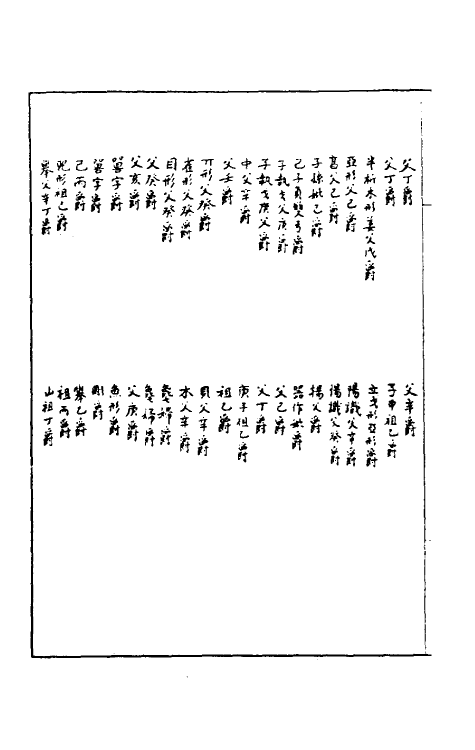 父丁爵
父丁爵
半析木形姜父戊爵
亞形父己爵
父己爵
子孫妣己爵
己子負雙弓爵
子執戈父庚爵
子執戈庚父爵
中父辛爵
父壬爵
丌形父癸爵
雀形父癸爵
目形父癸爵
父癸爵
父亥爵
單字爵
字爵
己丙爵
兕形祖己爵
舉父辛丁爵
父辛爵
子申祖乙爵
立戈形亞形爵
陽識父辛爵
陽識父癸爵
揚父爵
器作爵
父己爵
父丁爵
庚子祖乙爵
祖乙爵
貝父辛爵
木父辛爵
婦爵
婦爵
父庚爵
魚形爵
剛爵
舉乙爵
祖丙爵
山祖丁爵